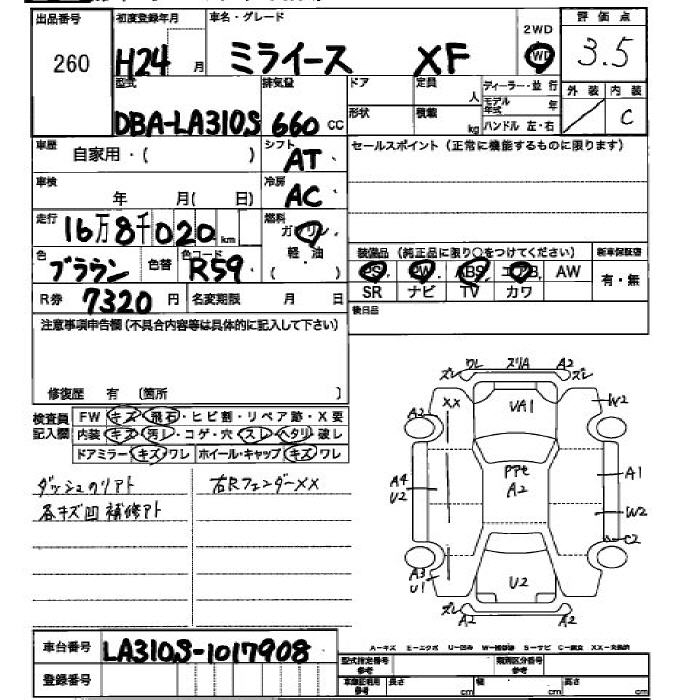 出品番号 初度登録年月 車名・グレード 2WD 評価点
260 H24 月 ミライース XF 4WD 3.5
型式 排気量 ドア 定員 人 ディーラー・並行 外装 内装
DBA-LA310S 660 cc 形状 積載 kg モデル年式 年 ハンドル 左・右 / C
車歴 自家用・( ) シフト AT セールスポイント(正常に機能するものに限ります)
車検 年 月( 日) 冷房 AC
走行 16万8千020 km 燃料 ガソリン
色 ブラウン 色替 色コード R59 軽・油 ( ) 装備品(純正品に限り○をつけてください) 新車保証書
PS PW ABS エアB AW 有・無
R券 7320 円 名変期限 月 日 SR ナビ TV カワ
注意事項申告欄(不具合内容等は具体的に記入して下さい) 後日品
修復歴 有 (箇所 )
検査員記入欄 FW キズ・飛石・ヒビ割・リペア跡・X要
内装 キズ・汚レ・コゲ・穴・スレ・ヘタリ・破レ
ドアミラー キズ・ワレ ホイール・キャップ キズ・ワレ
ダッシュのリアト 右RフェンダーXX
各キズ凹補修アト
ズレ ワレ スリA A2 ズレ
XX VA1 W2
A2
A4 U2 PPt A2 A1
W2
C2
A3 U1 U2
ズレ A2 A2
車台番号 LA310S-1017908
A-キズ E-エクボ U-凹み W-補修跡 S-サビ C-腐食 XX-交換済
登録番号 型式指定番号 参考 類別区分番号 参考
車庫証明用 参考 長さ cm 幅 cm 高さ cm